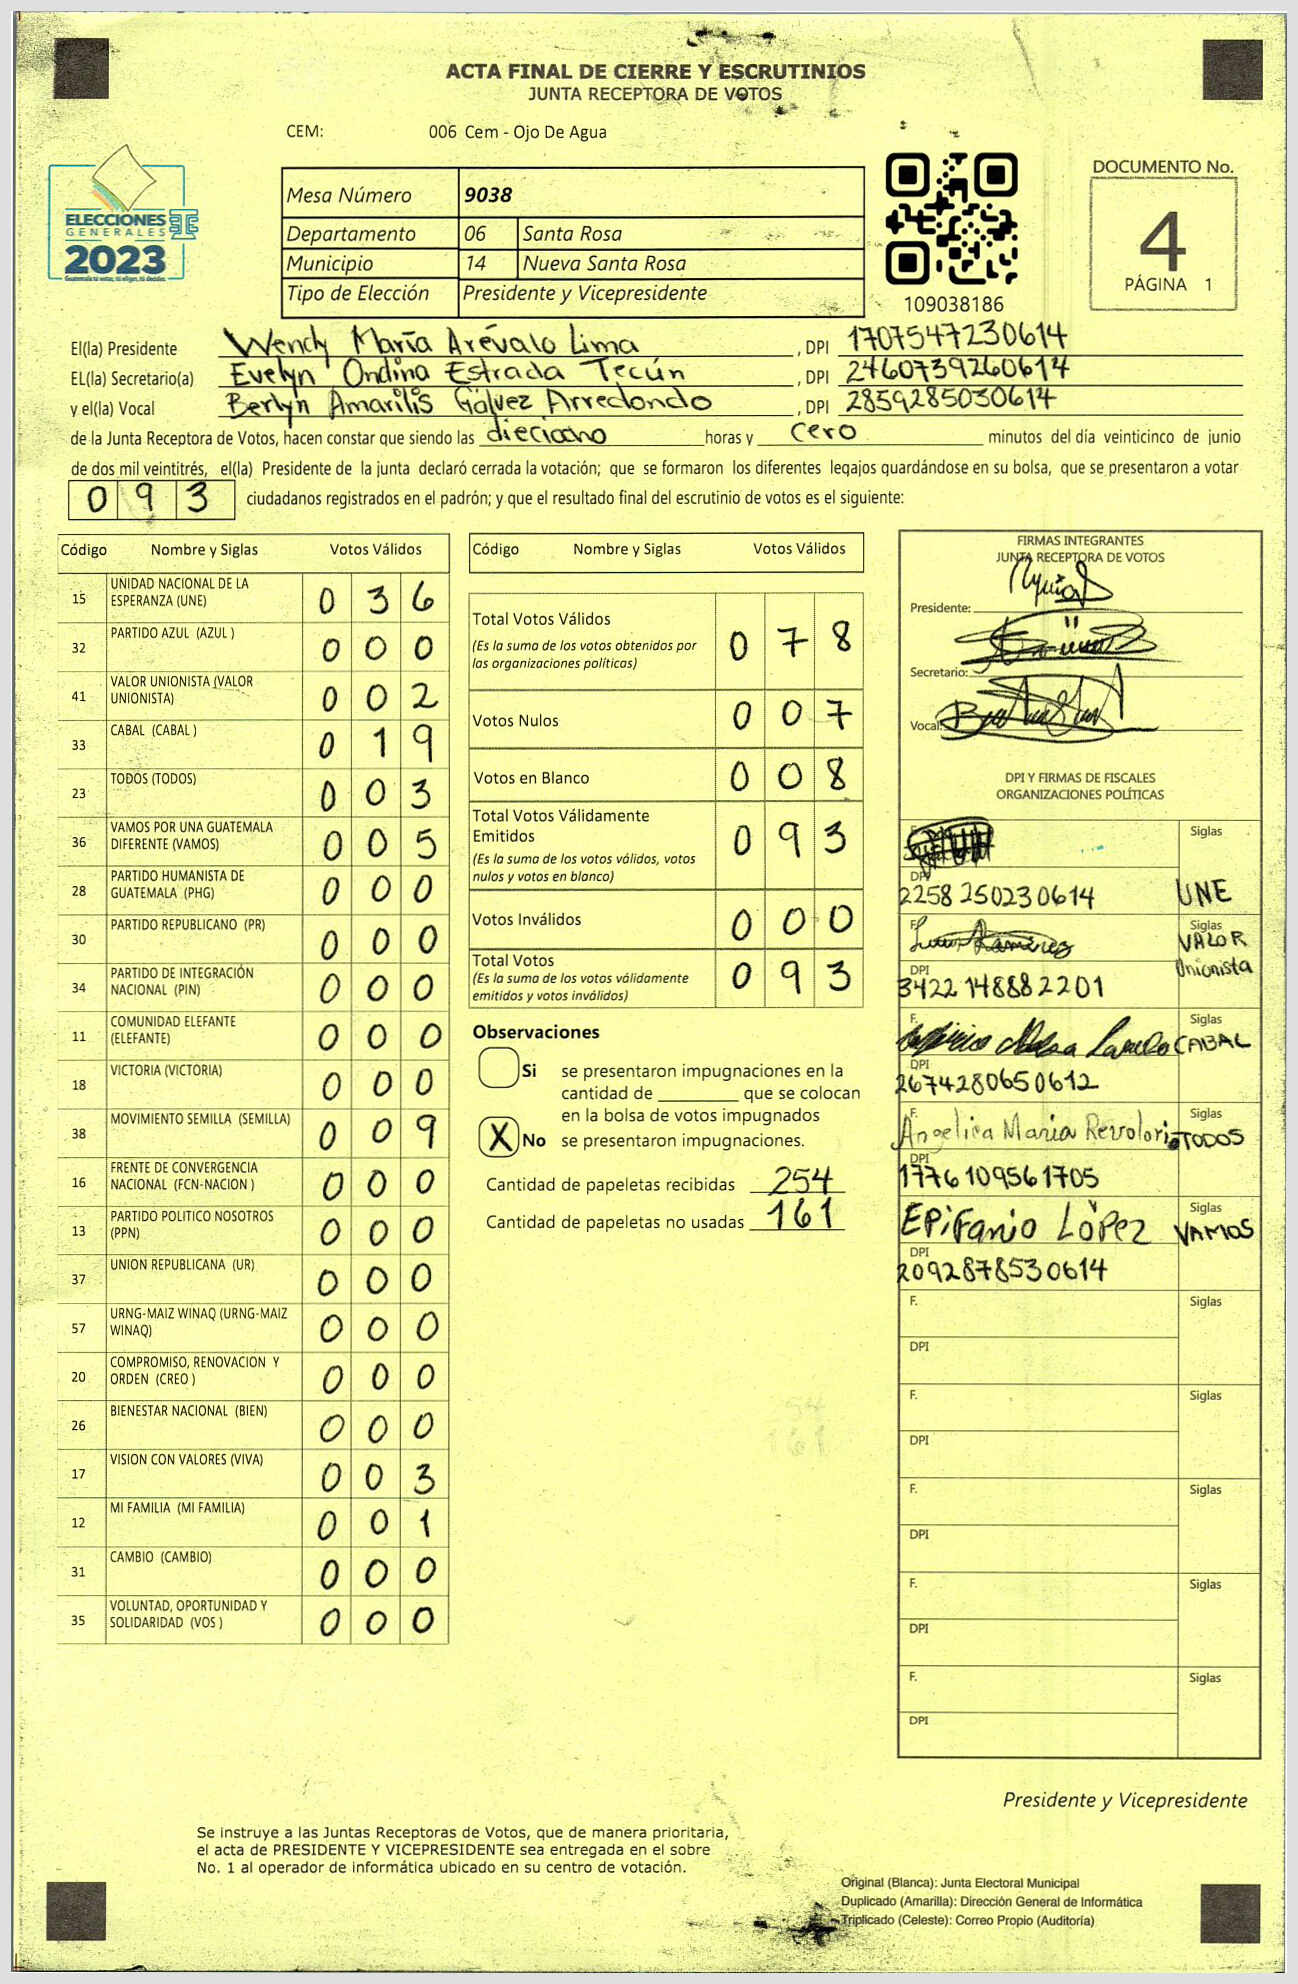 ACTA FINAL DE CIERRE Y ESCRUTINIOS
JUNTA RECEPTORA DE VOTOS
CEM: 006 Cem - Ojo De Agua
ELECCIONES
GENERALES
2023
Mesa Número 9038
Departamento 06 Santa Rosa
Municipio 14 Nueva Santa Rosa
Tipo de Elección Presidente y Vicepresidente
109038186
DOCUMENTO No.
4
PÁGINA 1
El(la) Presidente Wendy María Arévalo Lima , DPI 1707547230614
EL(la) Secretario(a) Evelyn Ondina Estrada Tecún , DPI 2460739260614
y el(la) Vocal Berlyn Amarilis Gálvez Arredondo , DPI 2859285030614
de la Junta Receptora de Votos, hacen constar que siendo las dieciocho horas y cero minutos del día veinticinco de junio
de dos mil veintitrés, el(la) Presidente de la junta declaró cerrada la votación; que se formaron los diferentes legajos guardándose en su bolsa, que se presentaron a votar
093 ciudadanos registrados en el padrón; y que el resultado final del escrutinio de votos es el siguiente:
Código Nombre y Siglas Votos Válidos
15 UNIDAD NACIONAL DE LA ESPERANZA (UNE) 036
32 PARTIDO AZUL (AZUL ) 000
41 VALOR UNIONISTA (VALOR UNIONISTA) 002
33 CABAL (CABAL ) 019
23 TODOS (TODOS) 003
36 VAMOS POR UNA GUATEMALA DIFERENTE (VAMOS) 005
28 PARTIDO HUMANISTA DE GUATEMALA (PHG) 000
30 PARTIDO REPUBLICANO (PR) 000
34 PARTIDO DE INTEGRACIÓN NACIONAL (PIN) 000
11 COMUNIDAD ELEFANTE (ELEFANTE) 000
18 VICTORIA (VICTORIA) 000
38 MOVIMIENTO SEMILLA (SEMILLA) 009
16 FRENTE DE CONVERGENCIA NACIONAL (FCN-NACION ) 000
13 PARTIDO POLITICO NOSOTROS (PPN) 000
37 UNION REPUBLICANA (UR) 000
57 URNG-MAIZ WINAQ (URNG-MAIZ WINAQ) 000
20 COMPROMISO, RENOVACION Y ORDEN (CREO ) 000
26 BIENESTAR NACIONAL (BIEN) 000
17 VISION CON VALORES (VIVA) 003
12 MI FAMILIA (MI FAMILIA) 001
31 CAMBIO (CAMBIO) 000
35 VOLUNTAD, OPORTUNIDAD Y SOLIDARIDAD (VOS ) 000
Código Nombre y Siglas Votos Válidos
Total Votos Válidos 078
(Es la suma de los votos obtenidos por
las organizaciones políticas)
Votos Nulos 007
Votos en Blanco 008
Total Votos Válidamente
Emitidos 093
(Es la suma de los votos válidos, votos
nulos y votos en blanco)
Votos Inválidos 000
Total Votos 093
(Es la suma de los votos válidamente
emitidos y votos inválidos)
Observaciones
Si se presentaron impugnaciones en la
cantidad de ________ que se colocan
en la bolsa de votos impugnados
X No se presentaron impugnaciones.
Cantidad de papeletas recibidas 254
Cantidad de papeletas no usadas 161
FIRMAS INTEGRANTES
JUNTA RECEPTORA DE VOTOS
Presidente:
Secretario:
Vocal:
DPI Y FIRMAS DE FISCALES
ORGANIZACIONES POLÍTICAS
F. Siglas
DPI
2258 250230614 UNE
F. Siglas
Ramírez VALOR
DPI Unionista
3422148882201
F. Siglas
CABAL
DPI
2674280650612
F. Siglas
Angelica Maria Revolorio TODOS
DPI
1776109561705
Siglas
EPiFanio López VAMOS
DPI
2092878530614
F. Siglas
DPI
F. Siglas
DPI
F. Siglas
DPI
F. Siglas
DPI
F. Siglas
DPI
Presidente y Vicepresidente
Se instruye a las Juntas Receptoras de Votos, que de manera prioritaria,
el acta de PRESIDENTE Y VICEPRESIDENTE sea entregada en el sobre
No. 1 al operador de informática ubicado en su centro de votación.
Original (Blanca): Junta Electoral Municipal
Duplicado (Amarilla): Dirección General de Informática
Triplicado (Celeste): Correo Propio (Auditoría)